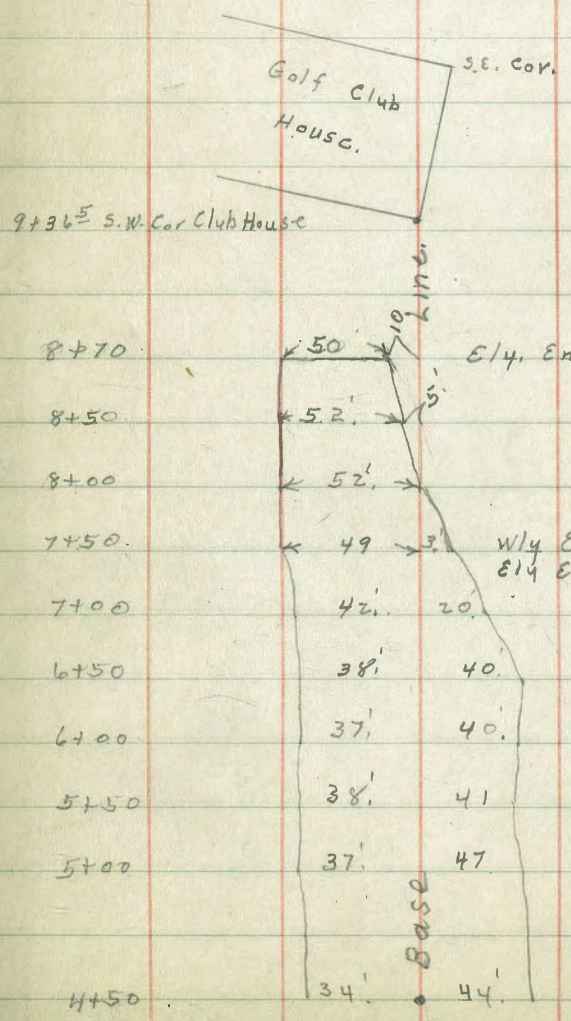 S.E. Cor.
Golf Club
House.
9+36⁵ S.W. Cor Club House
Line
8+70 50' 10' E/y. En
8+50 52'. 5.'
8+00 52'.
7+50. 49 3' W/y E
E/y E
7+00 42'. 20'.
6+50 38'. 40'.
6+00 37'. 40'.
5+50 38'. 41
5+00 37'. 47
Base
4+50 34'. 44'.